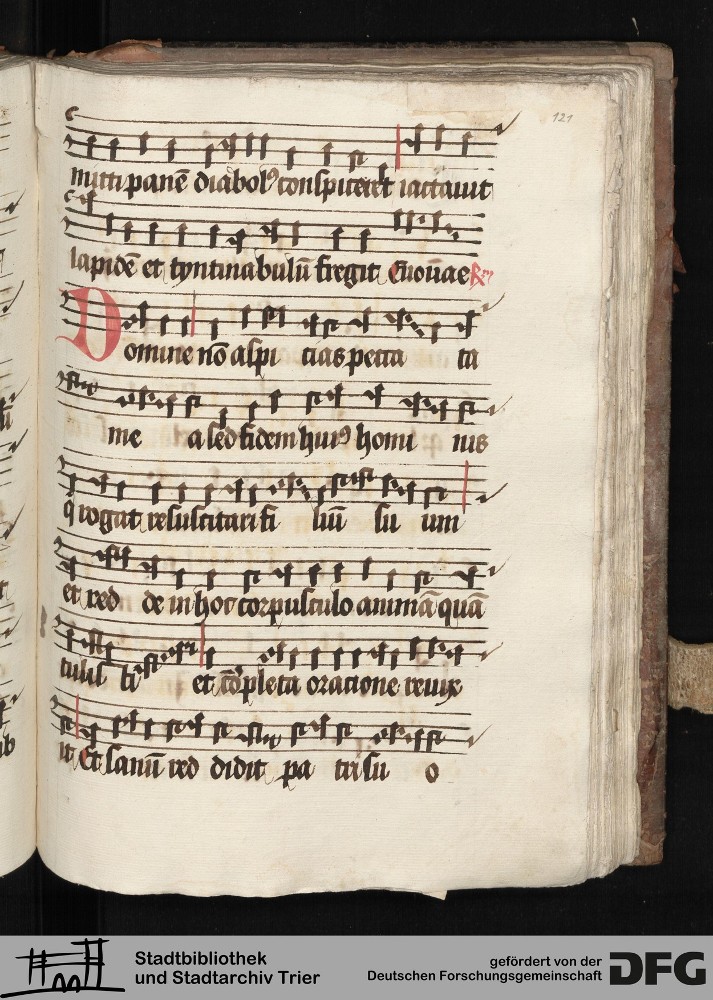 121
mitti panē diabolꝰ conspiceret iactauit
lapidē et tyntinabulū fregit Euouae ℟
Domine nō aspi cias pecca ta
me a sed fidem huiꝰ homi nis
q rogat resuscitari fi liū su um
et red de in hoc corpusculo animā quā
tulis ti et cōpleta oratione reuix
it Et sanū red didit pa tri su o
Stadtbibliothek
und Stadtarchiv Trier
gefördert von der
Deutschen Forschungsgemeinschaft
DFG